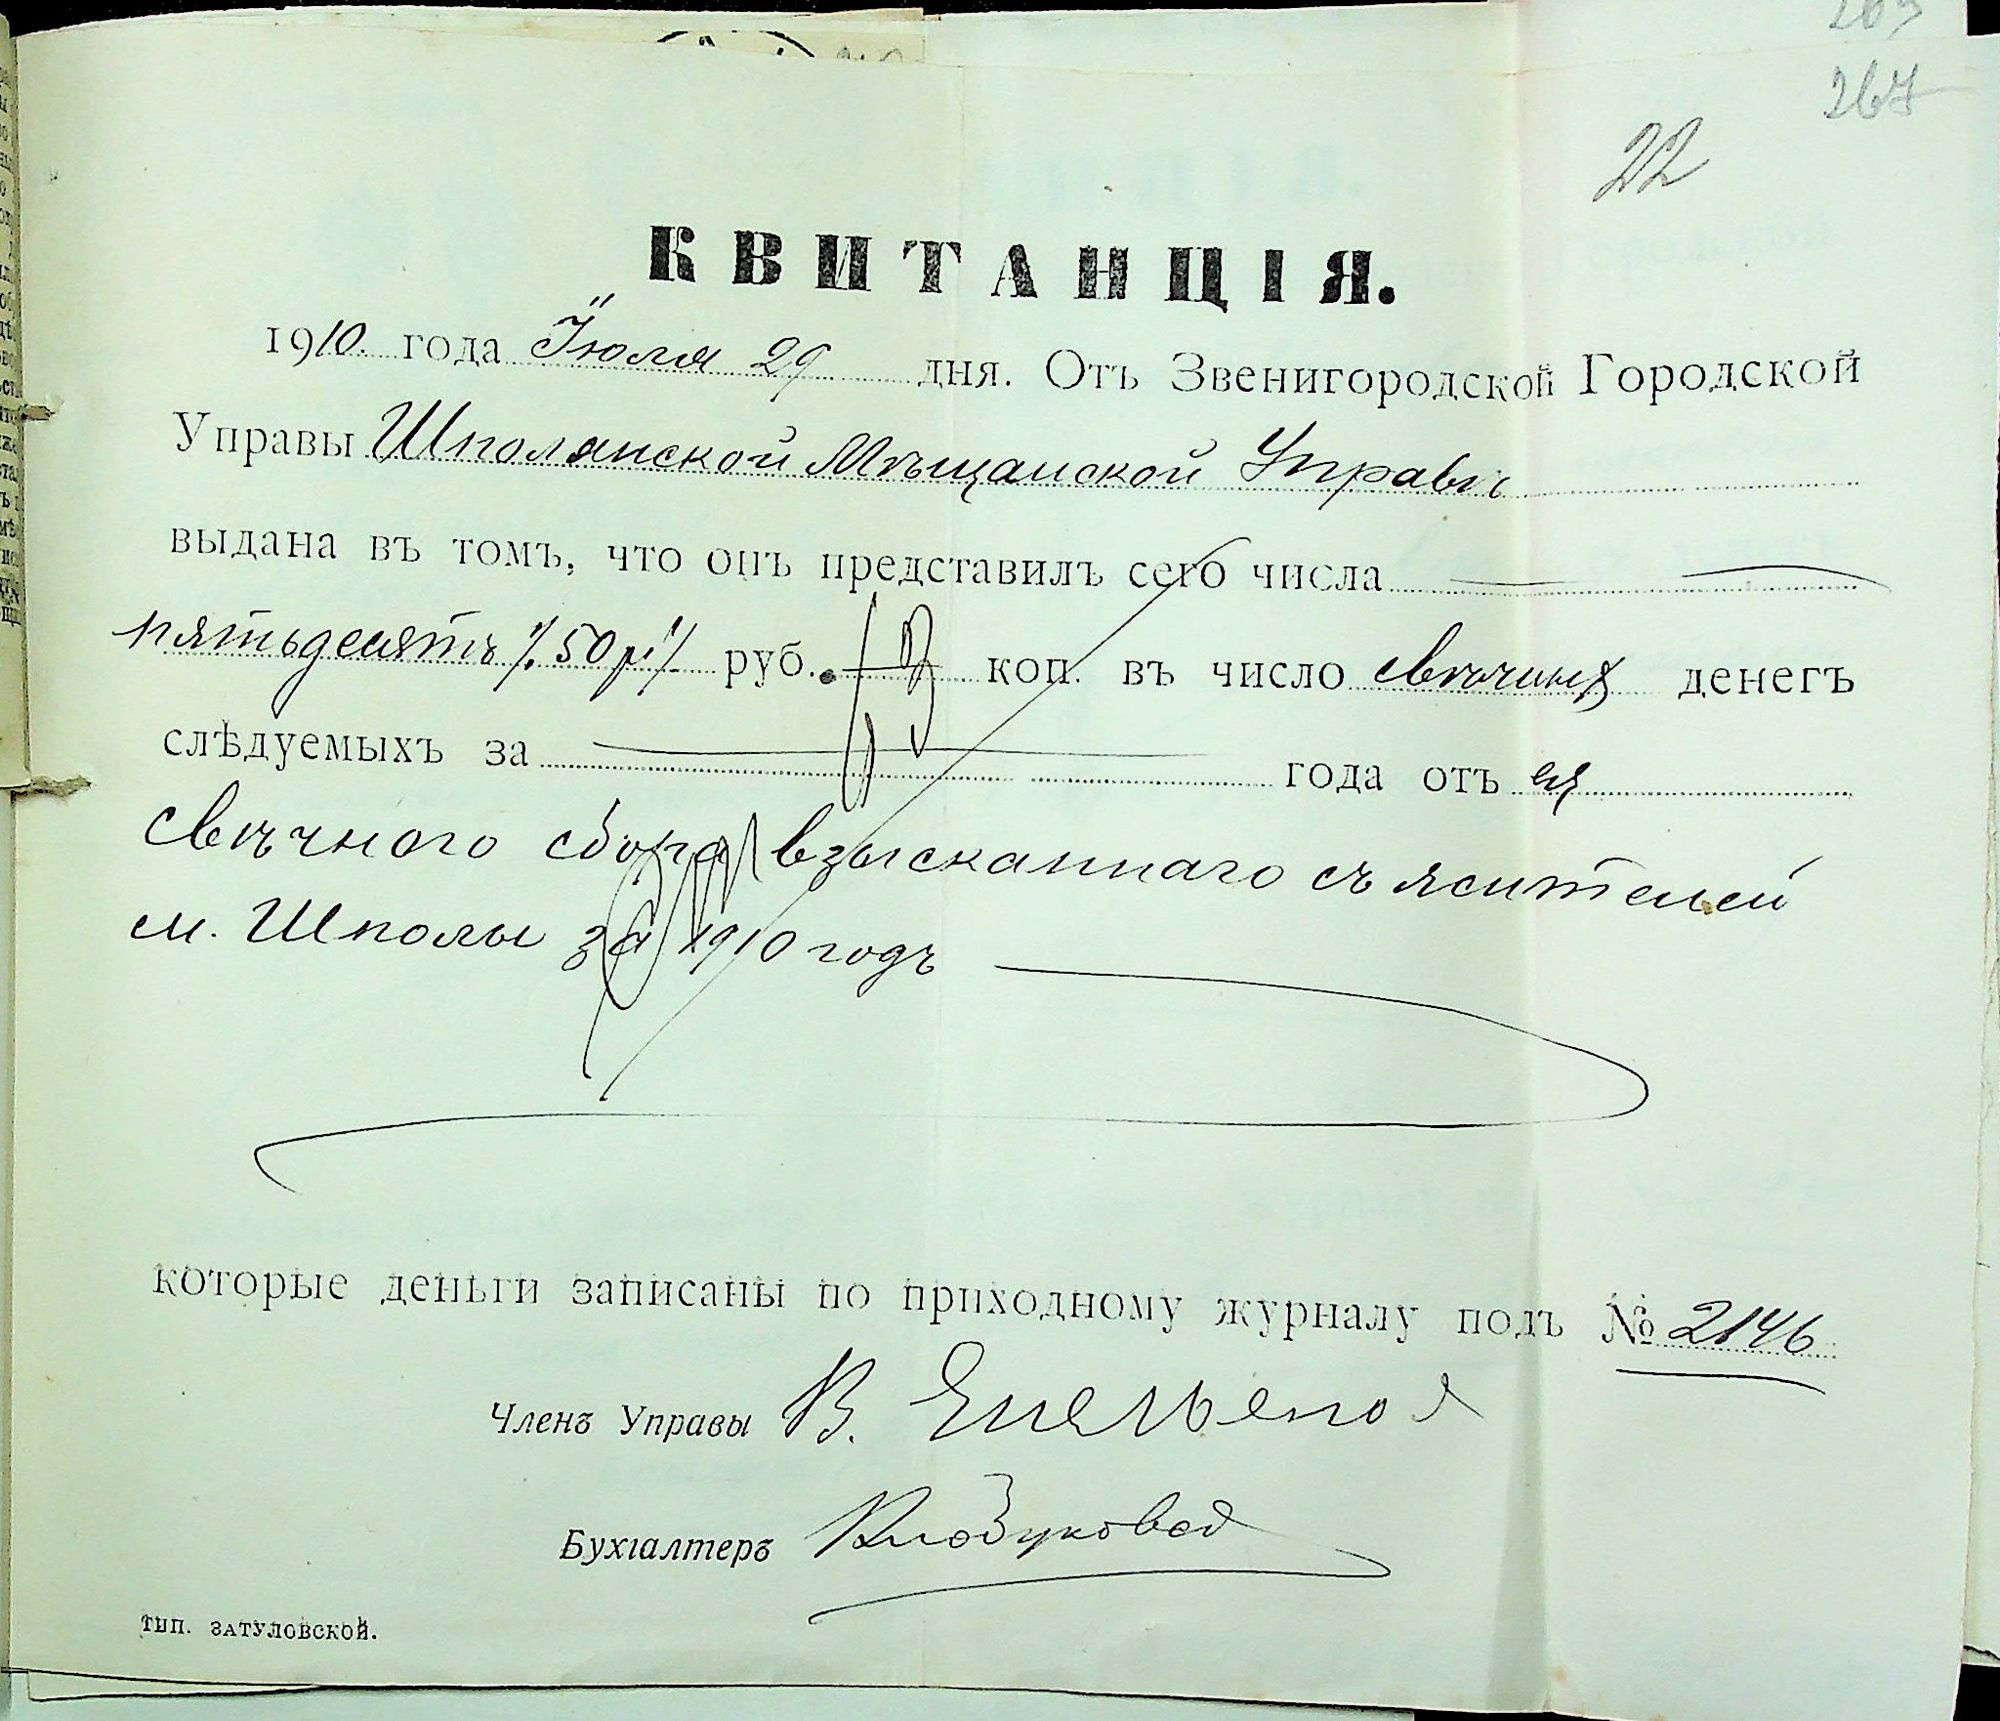 267
22
КВИТАНЦІЯ.
1910. года Іюля 29 дня. Отъ Звенигородской Городской
Управы Шполянской Мѣщанской Управѣ
выдана въ томъ, что онъ представилъ сего числа
пятьдесятъ /. 50 р. /. руб. коп. въ число свѣчныхъ денегъ
слѣдуемыхъ за года отъ ея
свѣчного сбора взысканнаго съ жителей
м. Шполы за 1910 годъ
которые деньги записаны по приходному журналу подъ № 2146
Членъ Управы В.
Бухгалтеръ
ТИП. ЗАТУЛОВСКОЙ.